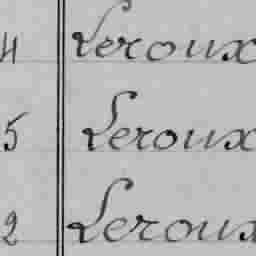 4 Leroux
5 Leroux
2 Leroux